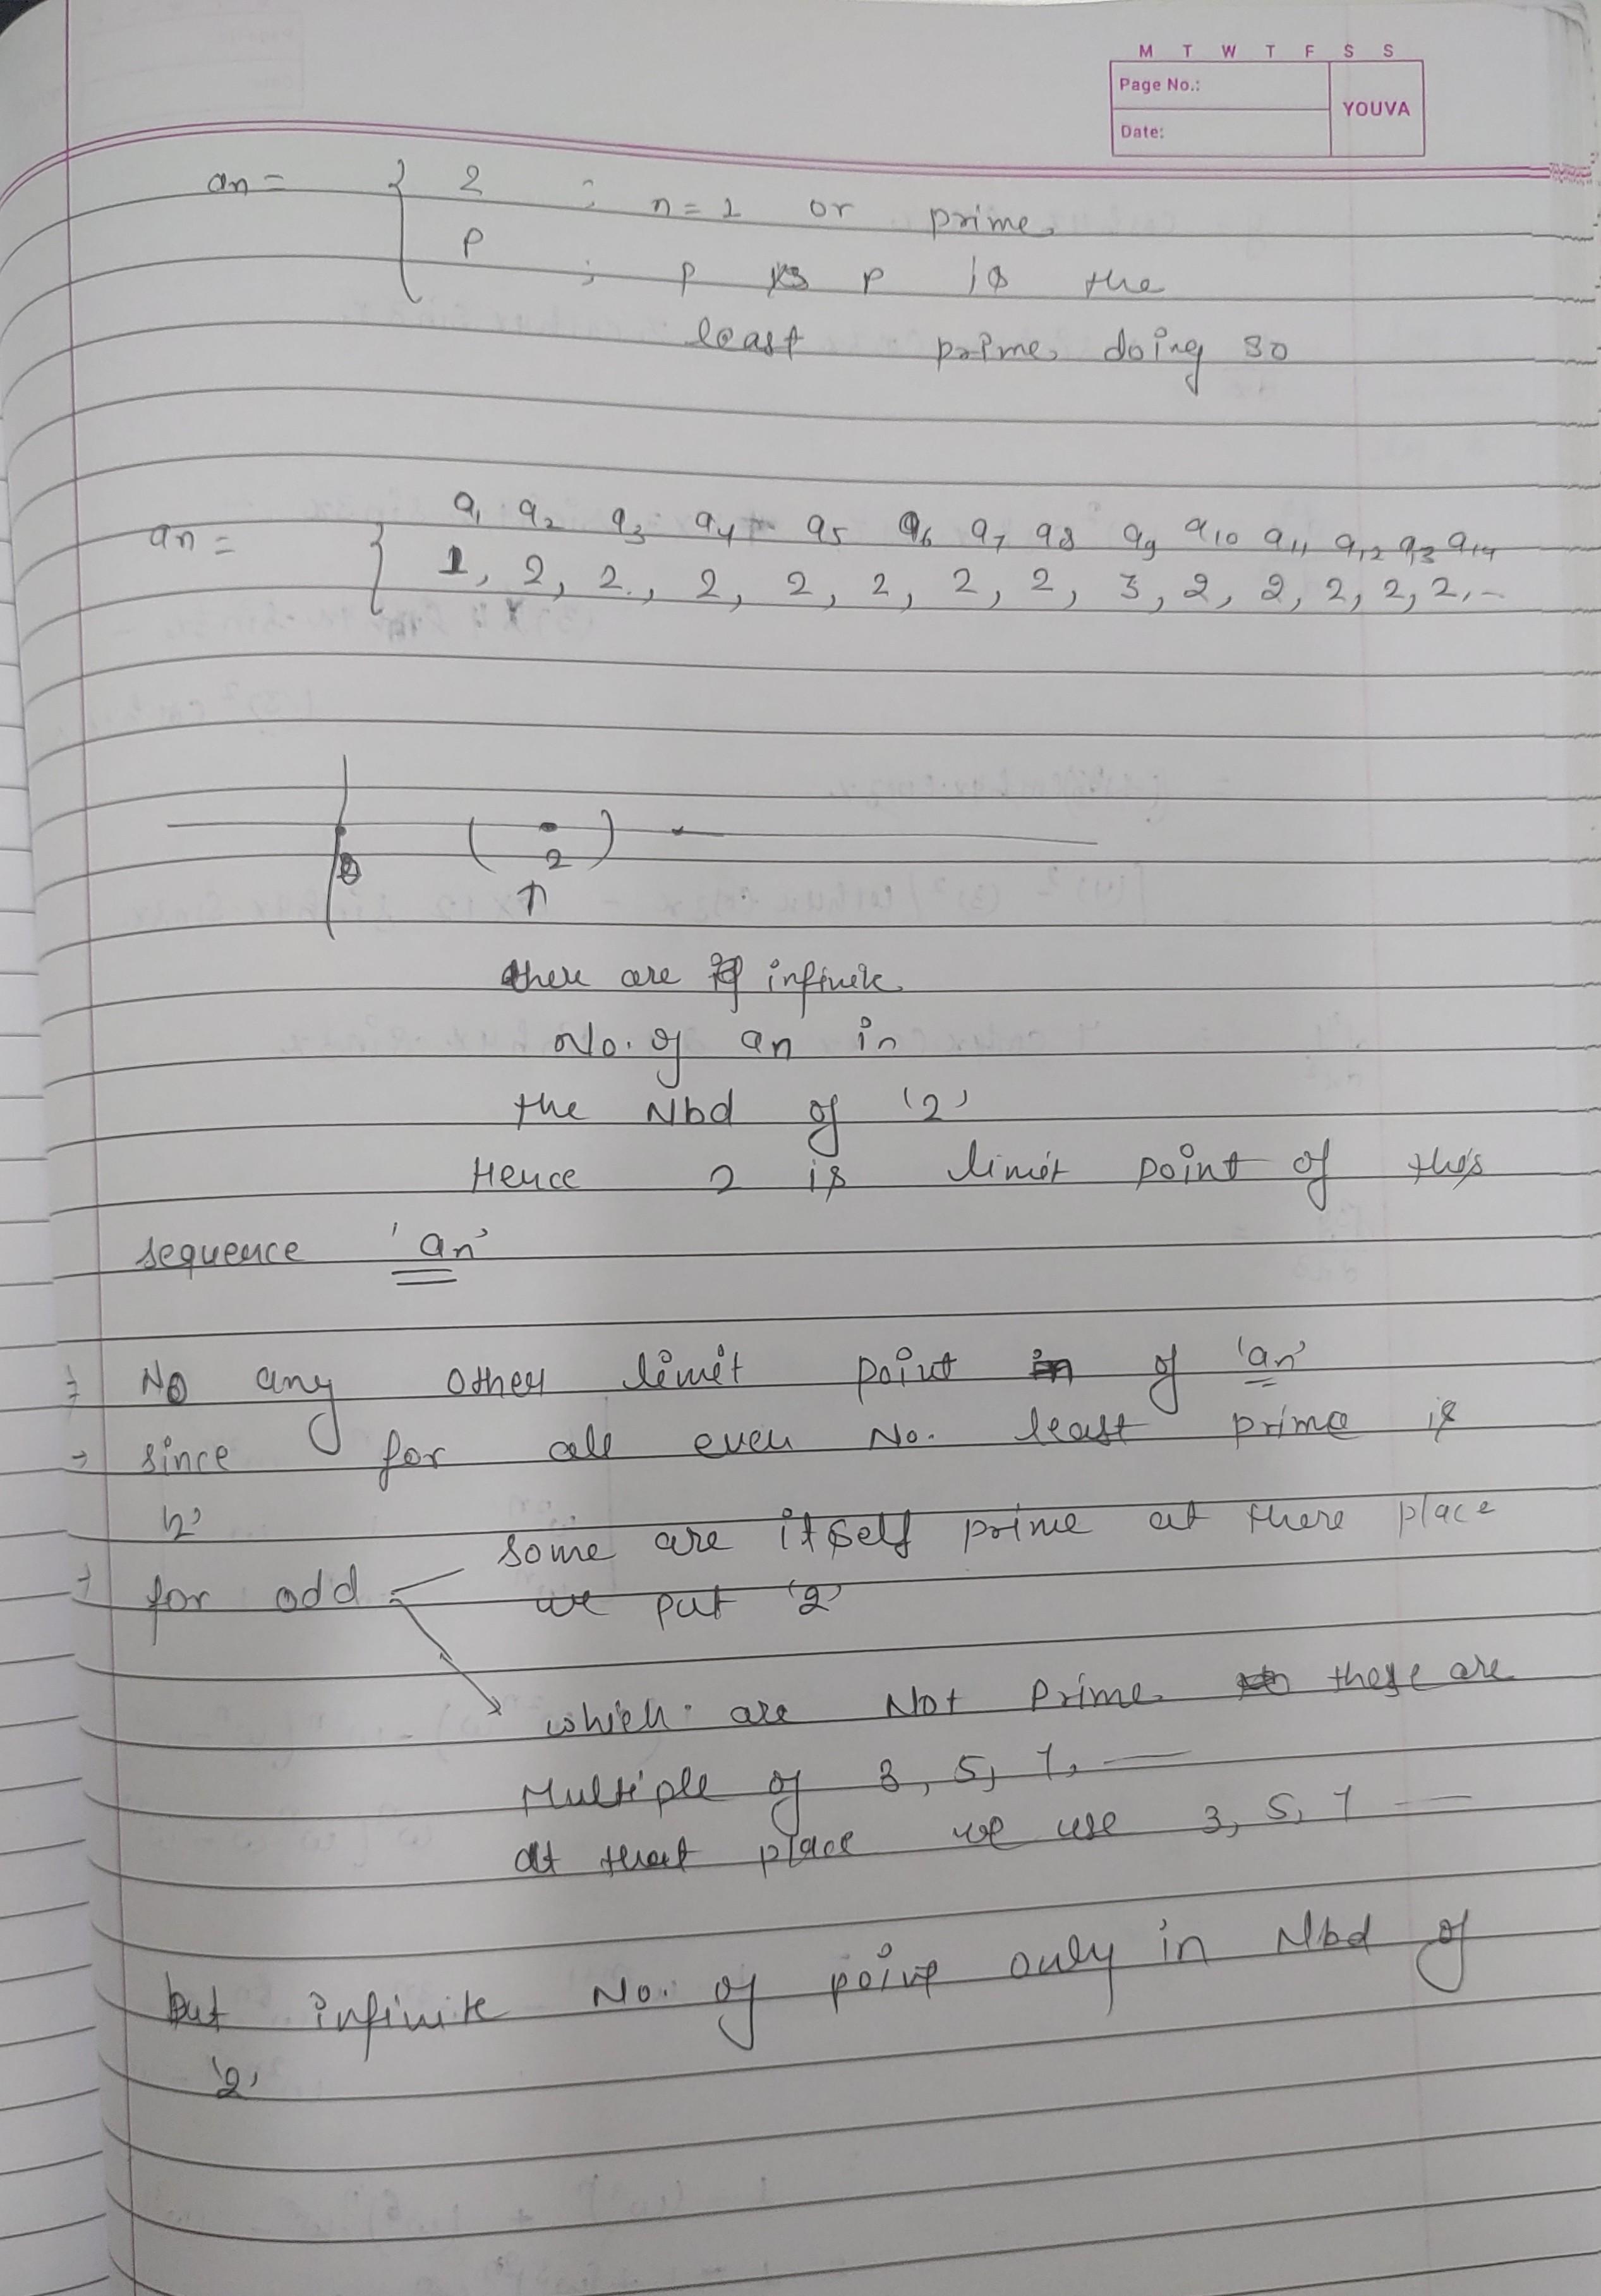 M T W T F S S
Page No.:
YOUVA
Date:
an = { 2 ; n=1 or prime
P ; P is P is the
least prime doing so
a1 a2 a3 a4 a5 a6 a7 a8 a9 a10 a11 a12 a13 a14
an = { 1, 2, 2, 2, 2, 2, 2, 2, 3, 2, 2, 2, 2, 2, -
( 2 )
0
↑
there are infinite
No. of an in
the Nbd of '2'
Hence 2 is limit point of this
sequence 'an'
⇒ No any other limit point of 'an'
→ since for all even No. least prime is
'2'
some are itself prime at there place
→ for odd
we put '2'
which are Not Prime these are
Multiple of 3, 5, 7, —
at that place we use 3, 5, 7 —
but infinite No. of point only in Nbd of
'2'